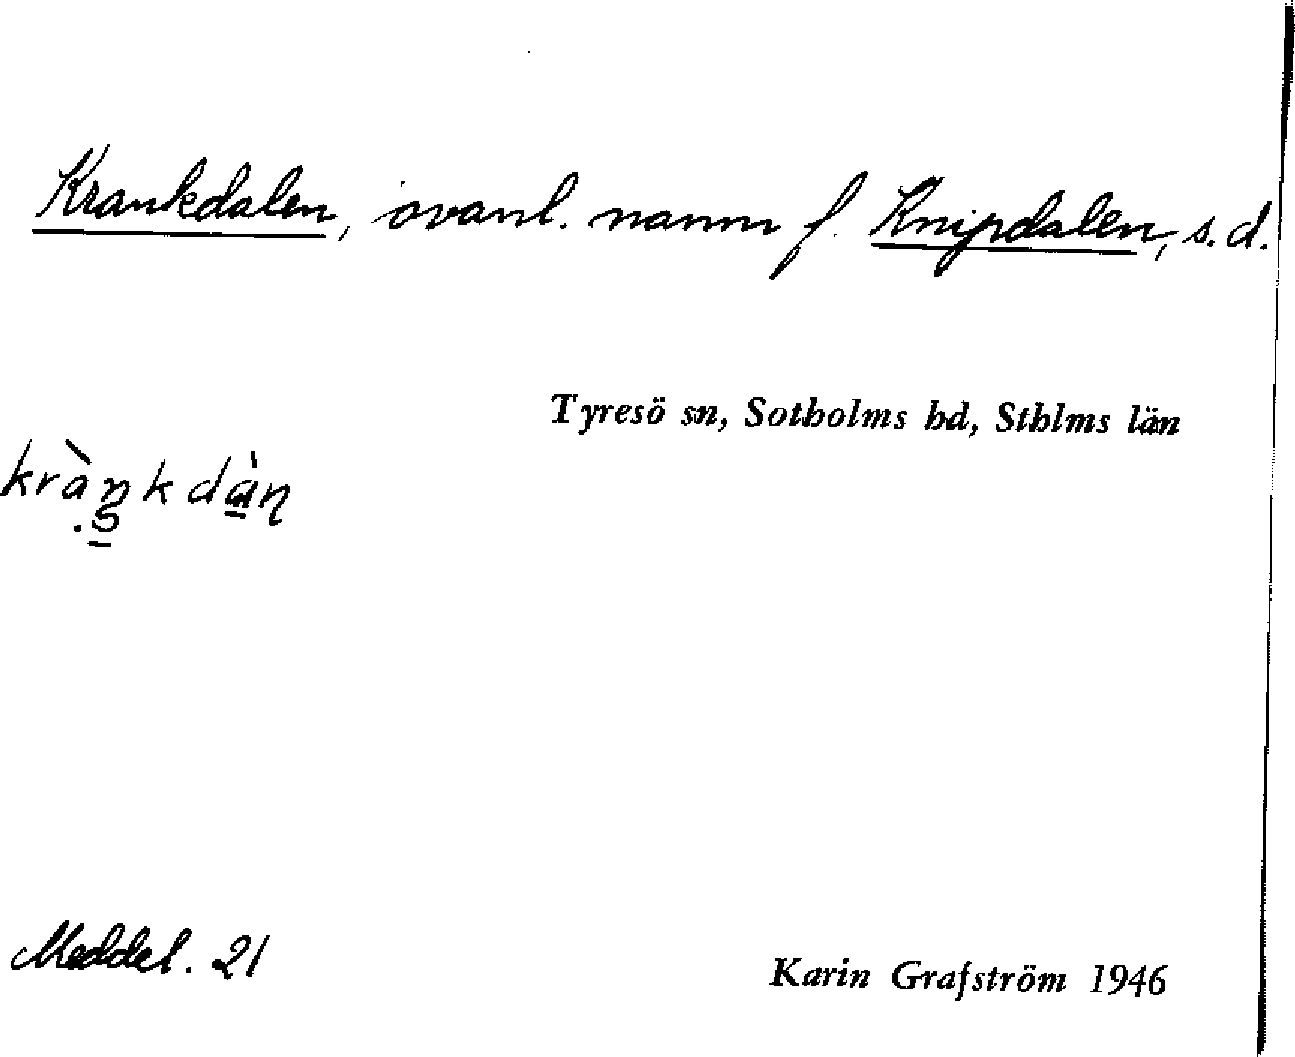 Krankdalen, ovanl. namn f. Knipdalen, s.d.
Tyresö sn, Sotholms hd, Sthlms län
Meddel. 21
Karin Grafström 1946